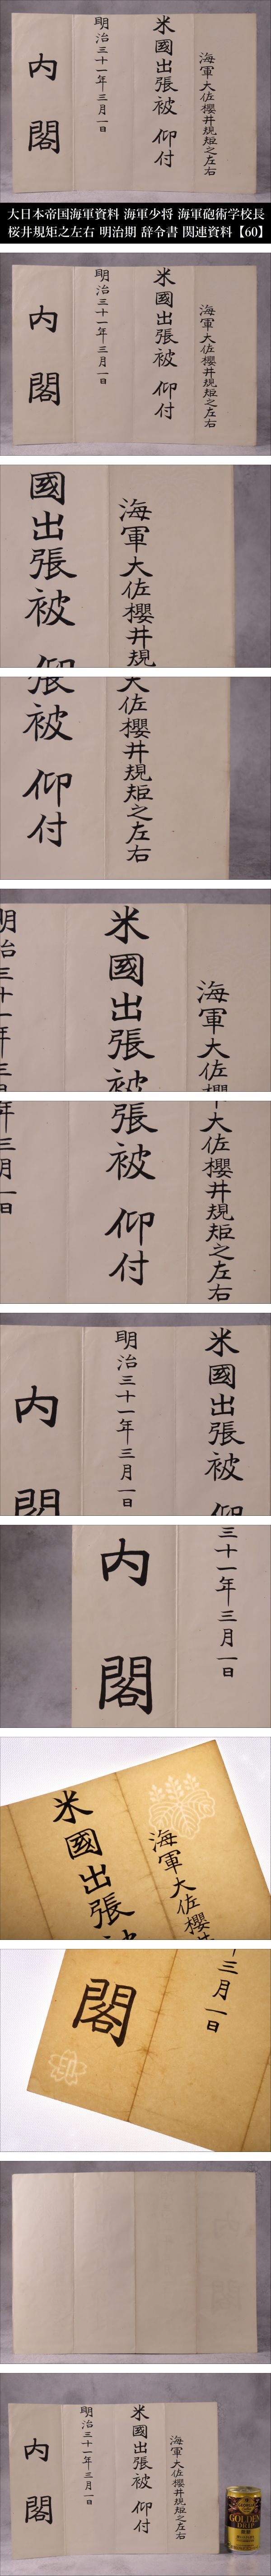 海軍大佐櫻井規矩之左右
米國出張被 仰付
明治三十一年三月一日
内閣
大日本帝国海軍資料 海軍少将 海軍砲術学校長
桜井規矩之左右 明治期 辞令書 関連資料【60】
海軍大佐櫻井規矩之左右
米國出張被 仰付
明治三十一年三月一日
内閣
海軍大佐櫻井規
國出張被 仰
大佐櫻井規矩之左右
張被 仰付
海軍大佐櫻
米國出張被
明治三十一年三月
大佐櫻井規矩之左右
張被 仰付
年三月一日
米國出張被 仰
明治三十一年三月一日
内閣
三十一年三月一日
内閣
海軍大佐櫻井
米國出張被
三月一日
閣
印
海軍大佐櫻井規矩之左右
米國出張被 仰付
明治三十一年三月一日
内閣
GOLDEN
DRIP